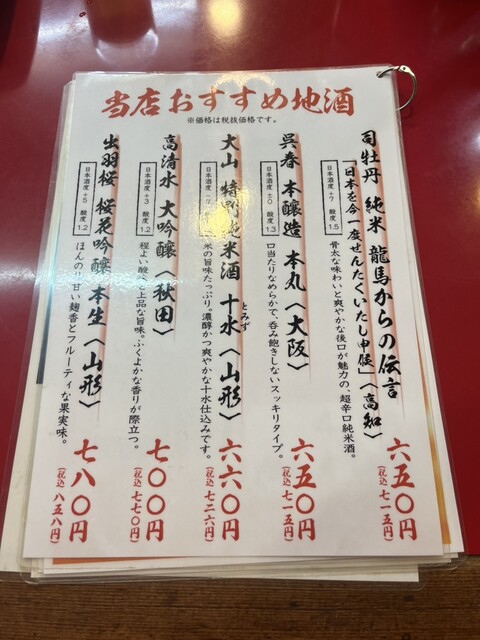 当店おすすめ地酒
※価格は税抜価格です。
司牡丹 純米 龍馬からの伝言
「日本を今一度せんたくいたし申候」〈高知〉
日本酒度 +7 酸度 1.5
骨太な味わいと爽やかな後口が魅力の、超辛口純米酒。
六五〇円
(税込 七一五円)
呉春 本醸造 本丸〈大阪〉
日本酒度 ±0 酸度 1.3
口当たりなめらかで、呑み飽きしないスッキリタイプ。
六五〇円
(税込 七一五円)
大山 特別純米酒 十水〈山形〉
とみず
日本酒度
米の旨味たっぷり。濃醇かつ爽やかな十水仕込みです。
六六〇円
(税込 七二六円)
高清水 大吟醸〈秋田〉
日本酒度 +3 酸度 1.2
程よい酸味と上品な旨味。ふくよかな香りが際立つ。
七〇〇円
(税込 七七〇円)
出羽桜 桜花吟醸 本生〈山形〉
日本酒度 +5 酸度 1.2
ほんのり甘い麹香とフルーティな果実味。
七八〇円
(税込 八五八円)